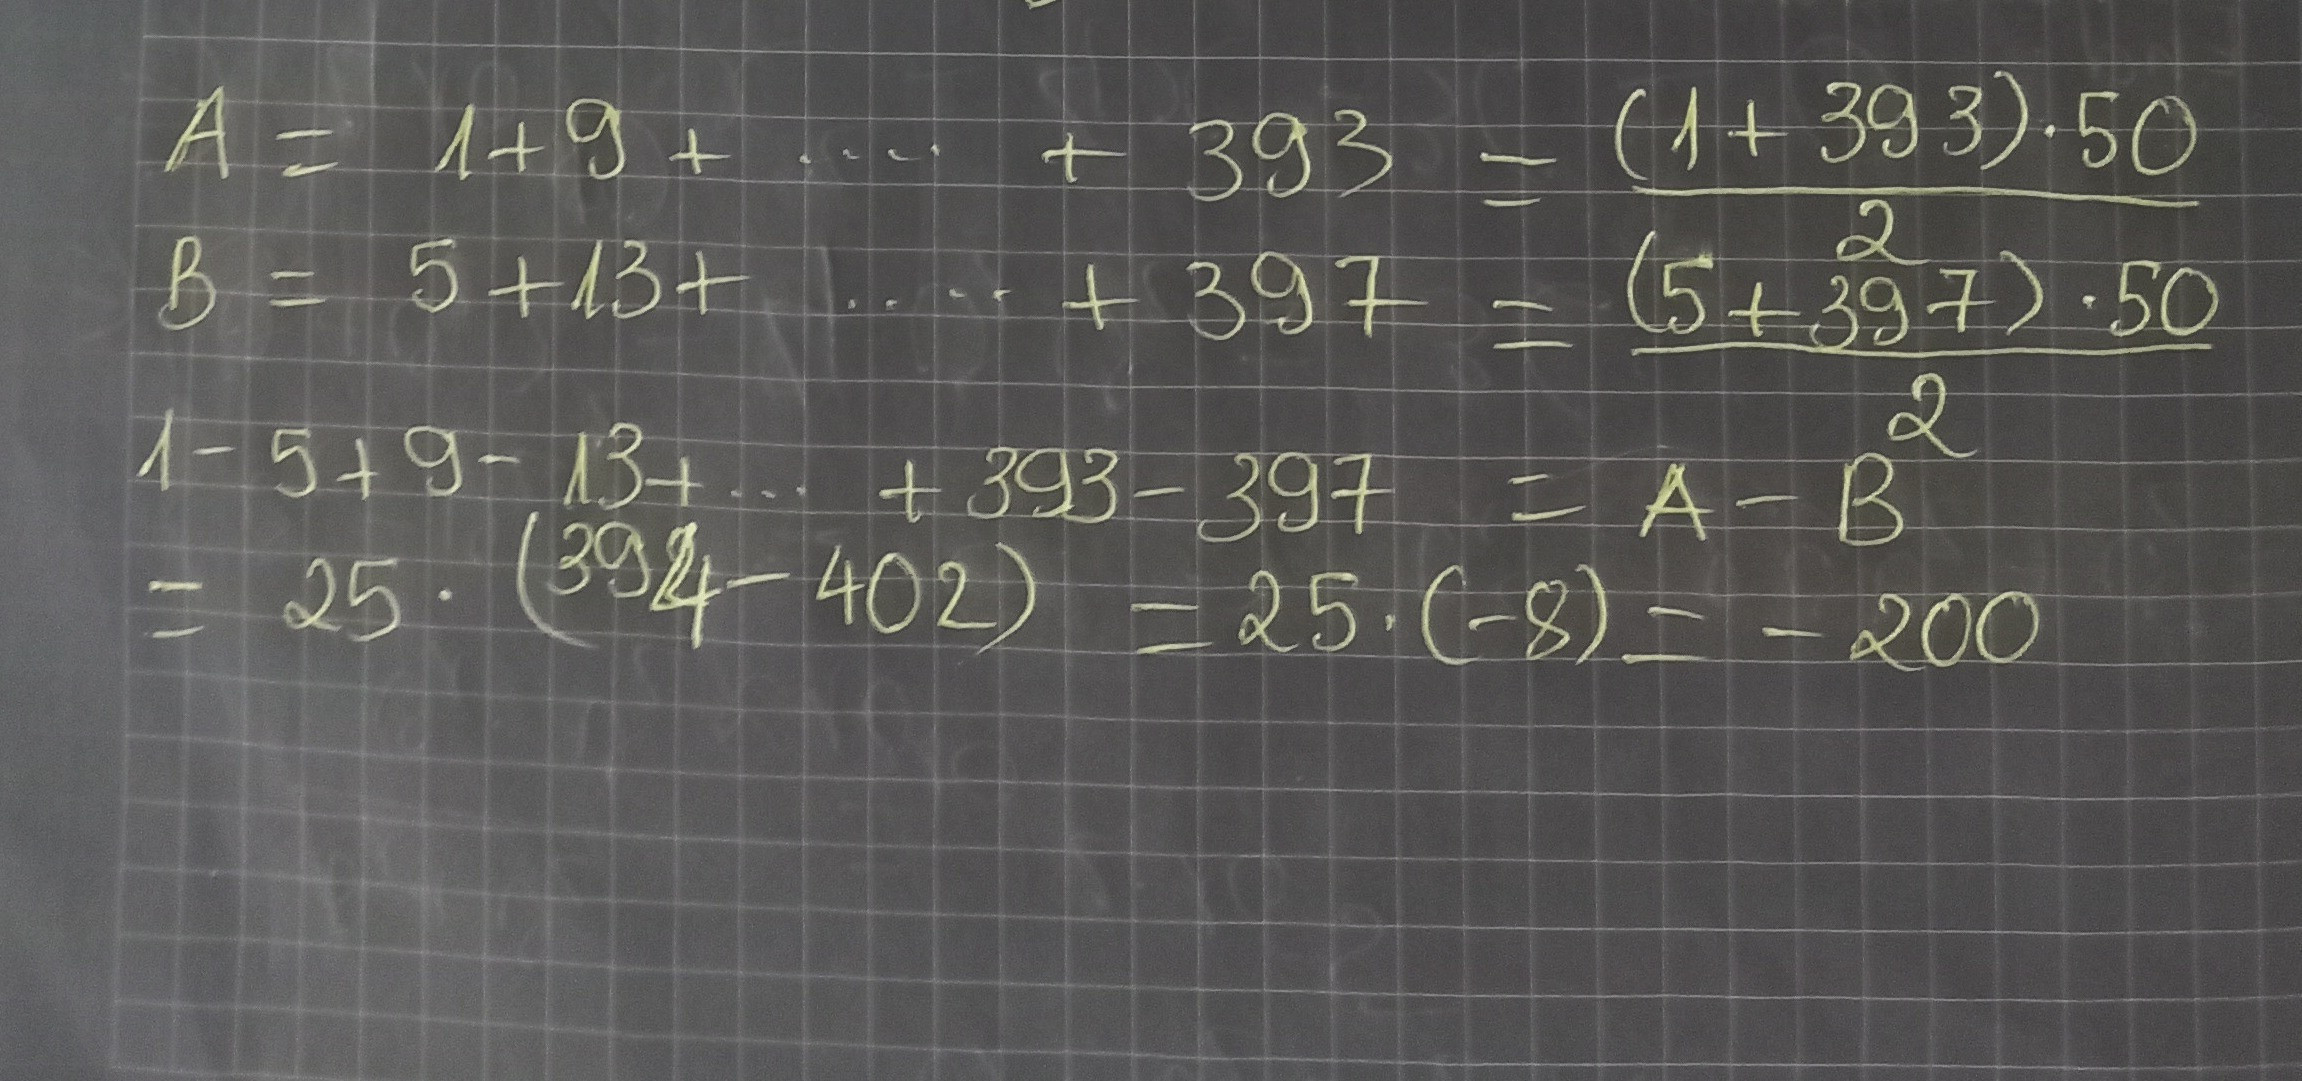 A = 1 + 9 + ..... + 393 = (1 + 393) · 50 / 2
B = 5 + 13 + ..... + 397 = (5 + 397) · 50 / 2
1 - 5 + 9 - 13 + ... + 393 - 397 = A - B
= 25 · (394 - 402) = 25 · (-8) = - 200